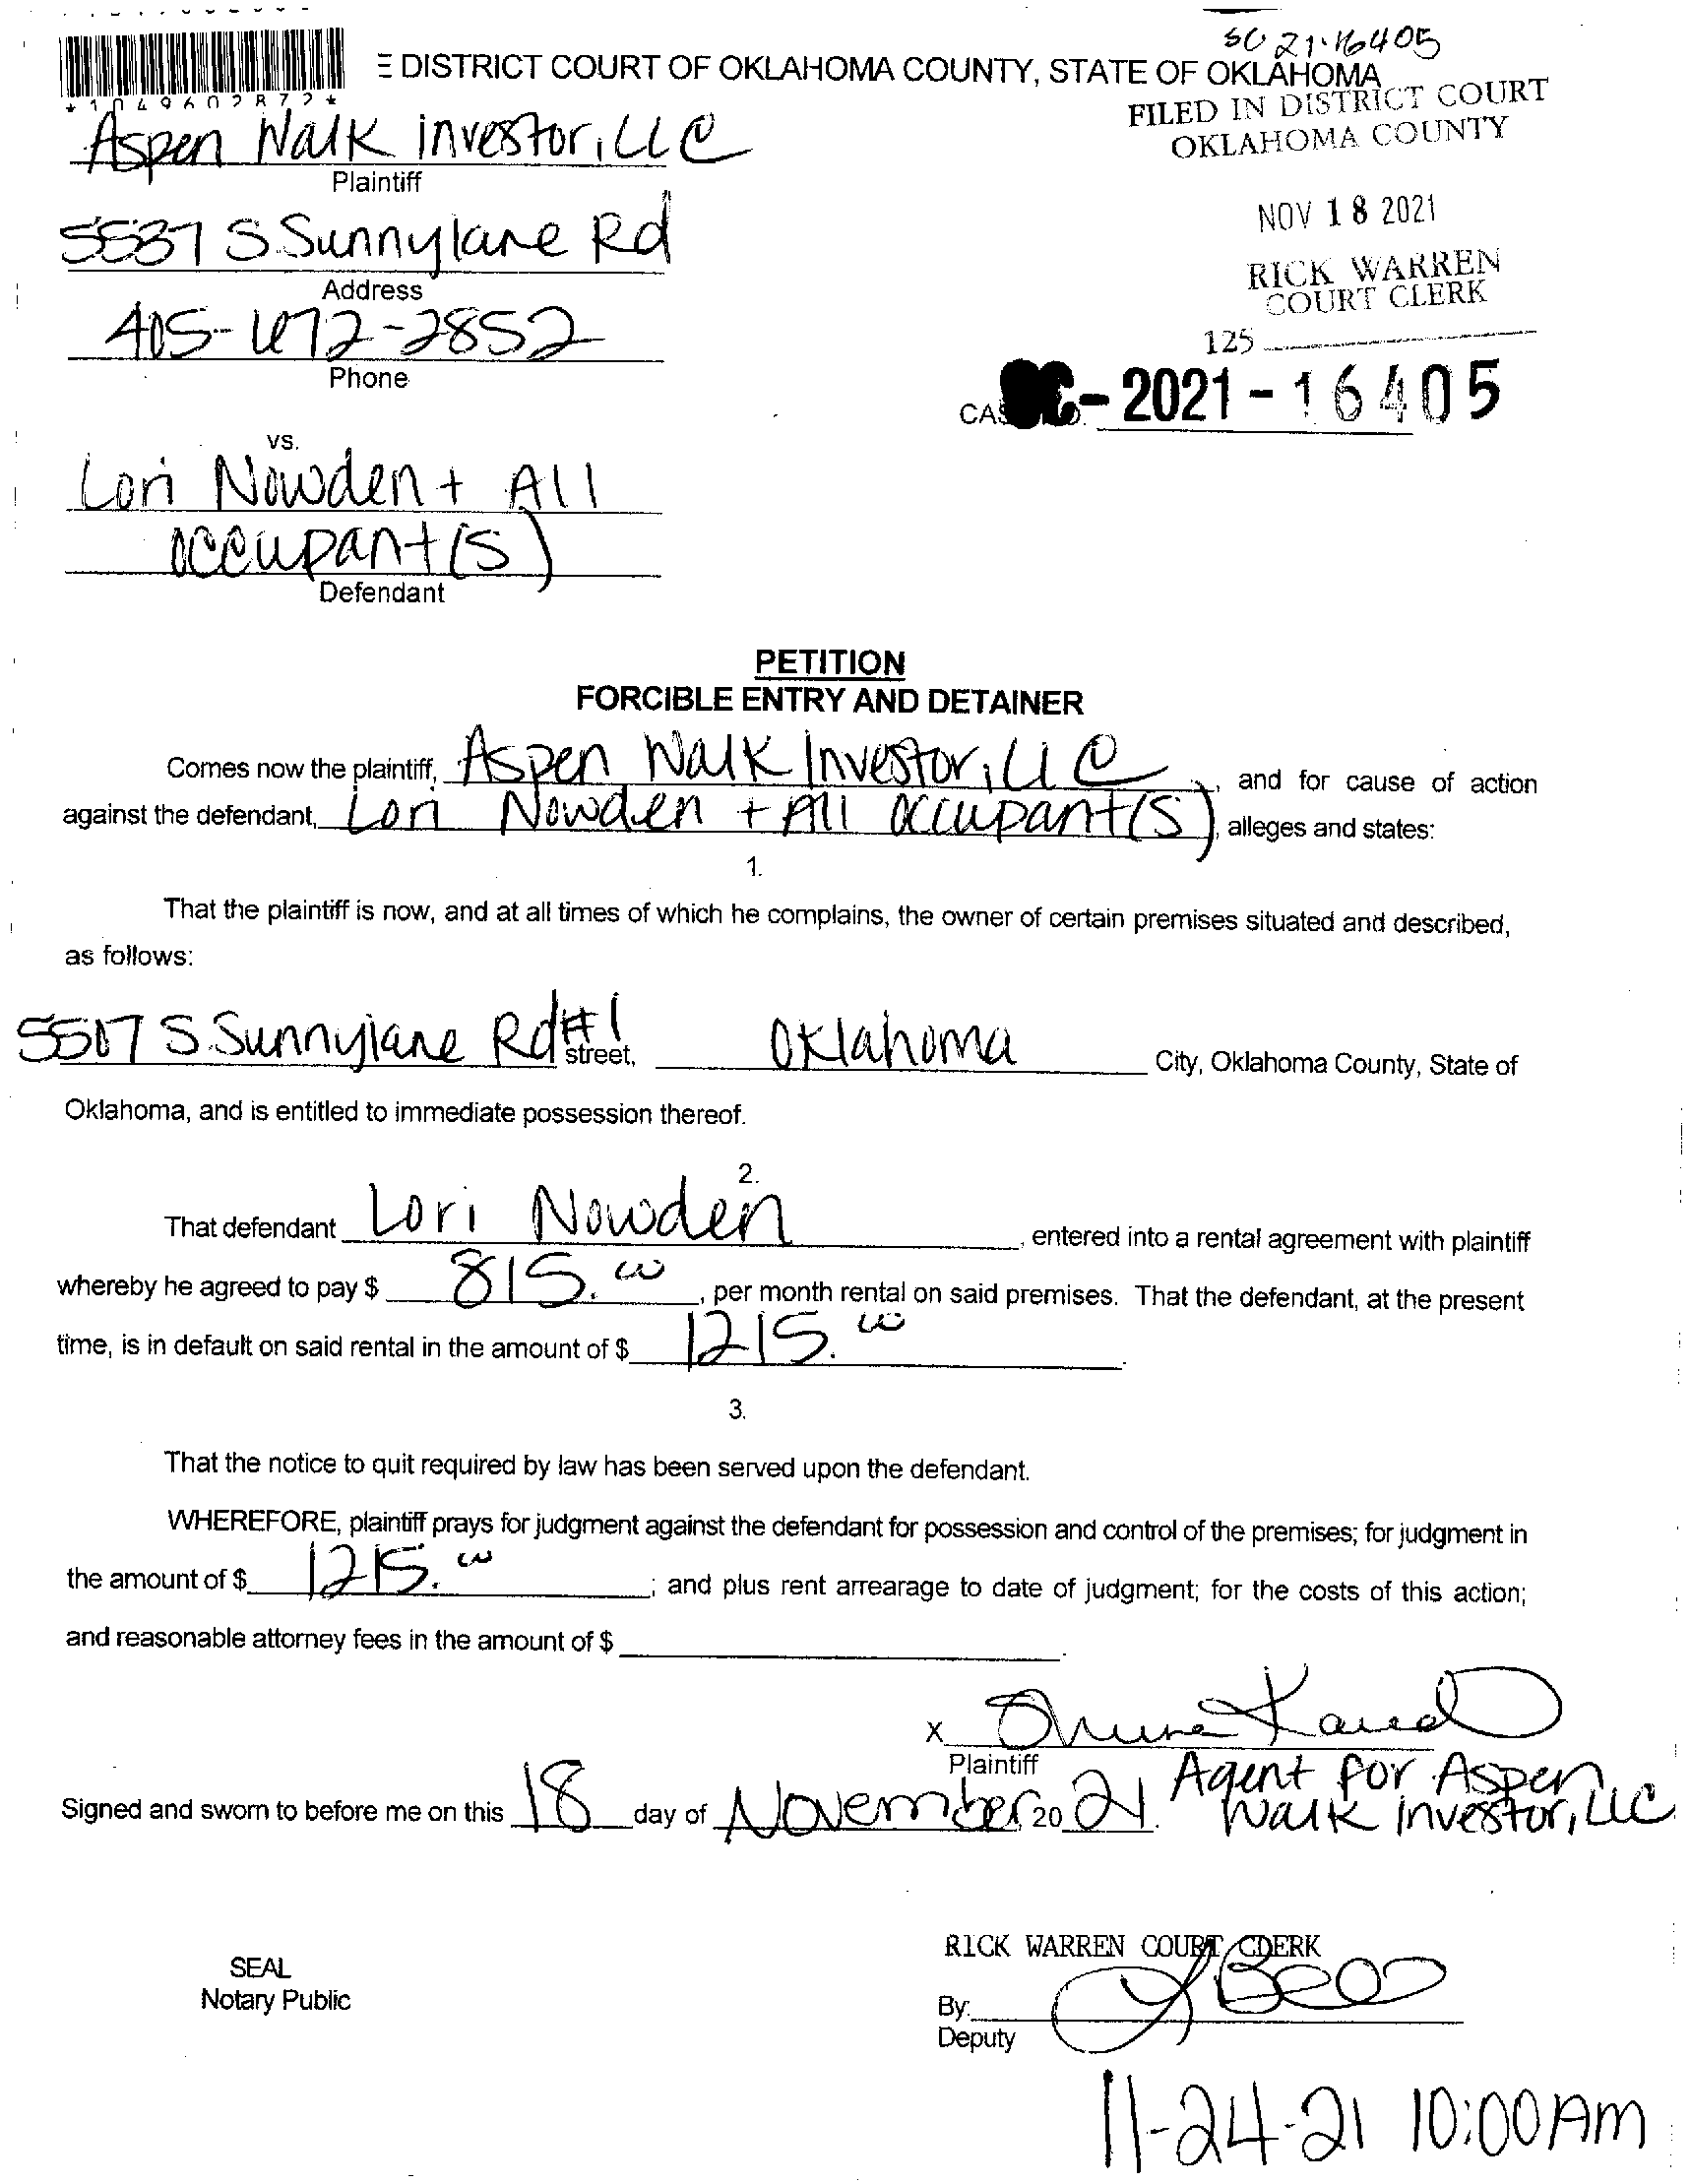 SC 21-16405
E DISTRICT COURT OF OKLAHOMA COUNTY, STATE OF OKLAHOMA
*1049602872*
FILED IN DISTRICT COURT
OKLAHOMA COUNTY
Aspen Walk investor, LLC
Plaintiff
NOV 18 2021
5537 S Sunnylane Rd
Address
RICK WARREN
COURT CLERK
405-672-2852
Phone
125
CAS C-2021-16405
vs.
Lori Nowden + All
occupant(s)
Defendant
PETITION
FORCIBLE ENTRY AND DETAINER
Comes now the plaintiff, Aspen Walk Investor, LLC, and for cause of action
against the defendant, Lori Nowden + All occupant(s), alleges and states:
1.
That the plaintiff is now, and at all times of which he complains, the owner of certain premises situated and described,
as follows:
5507 S Sunnylane Rd #1 street, Oklahoma City, Oklahoma County, State of
Oklahoma, and is entitled to immediate possession thereof.
2.
That defendant Lori Nowden, entered into a rental agreement with plaintiff
whereby he agreed to pay $ 815.00, per month rental on said premises. That the defendant, at the present
time, is in default on said rental in the amount of $ 1215.00.
3.
That the notice to quit required by law has been served upon the defendant.
WHEREFORE, plaintiff prays for judgment against the defendant for possession and control of the premises; for judgment in
the amount of $ 1215.00; and plus rent arrearage to date of judgment; for the costs of this action;
and reasonable attorney fees in the amount of $ .
X
Plaintiff
Agent for Aspen
Walk Investor, LLC
Signed and sworn to before me on this 18 day of November, 20 21.
RICK WARREN COURT CLERK
SEAL
Notary Public
By:
Deputy
11-24-21 10:00AM